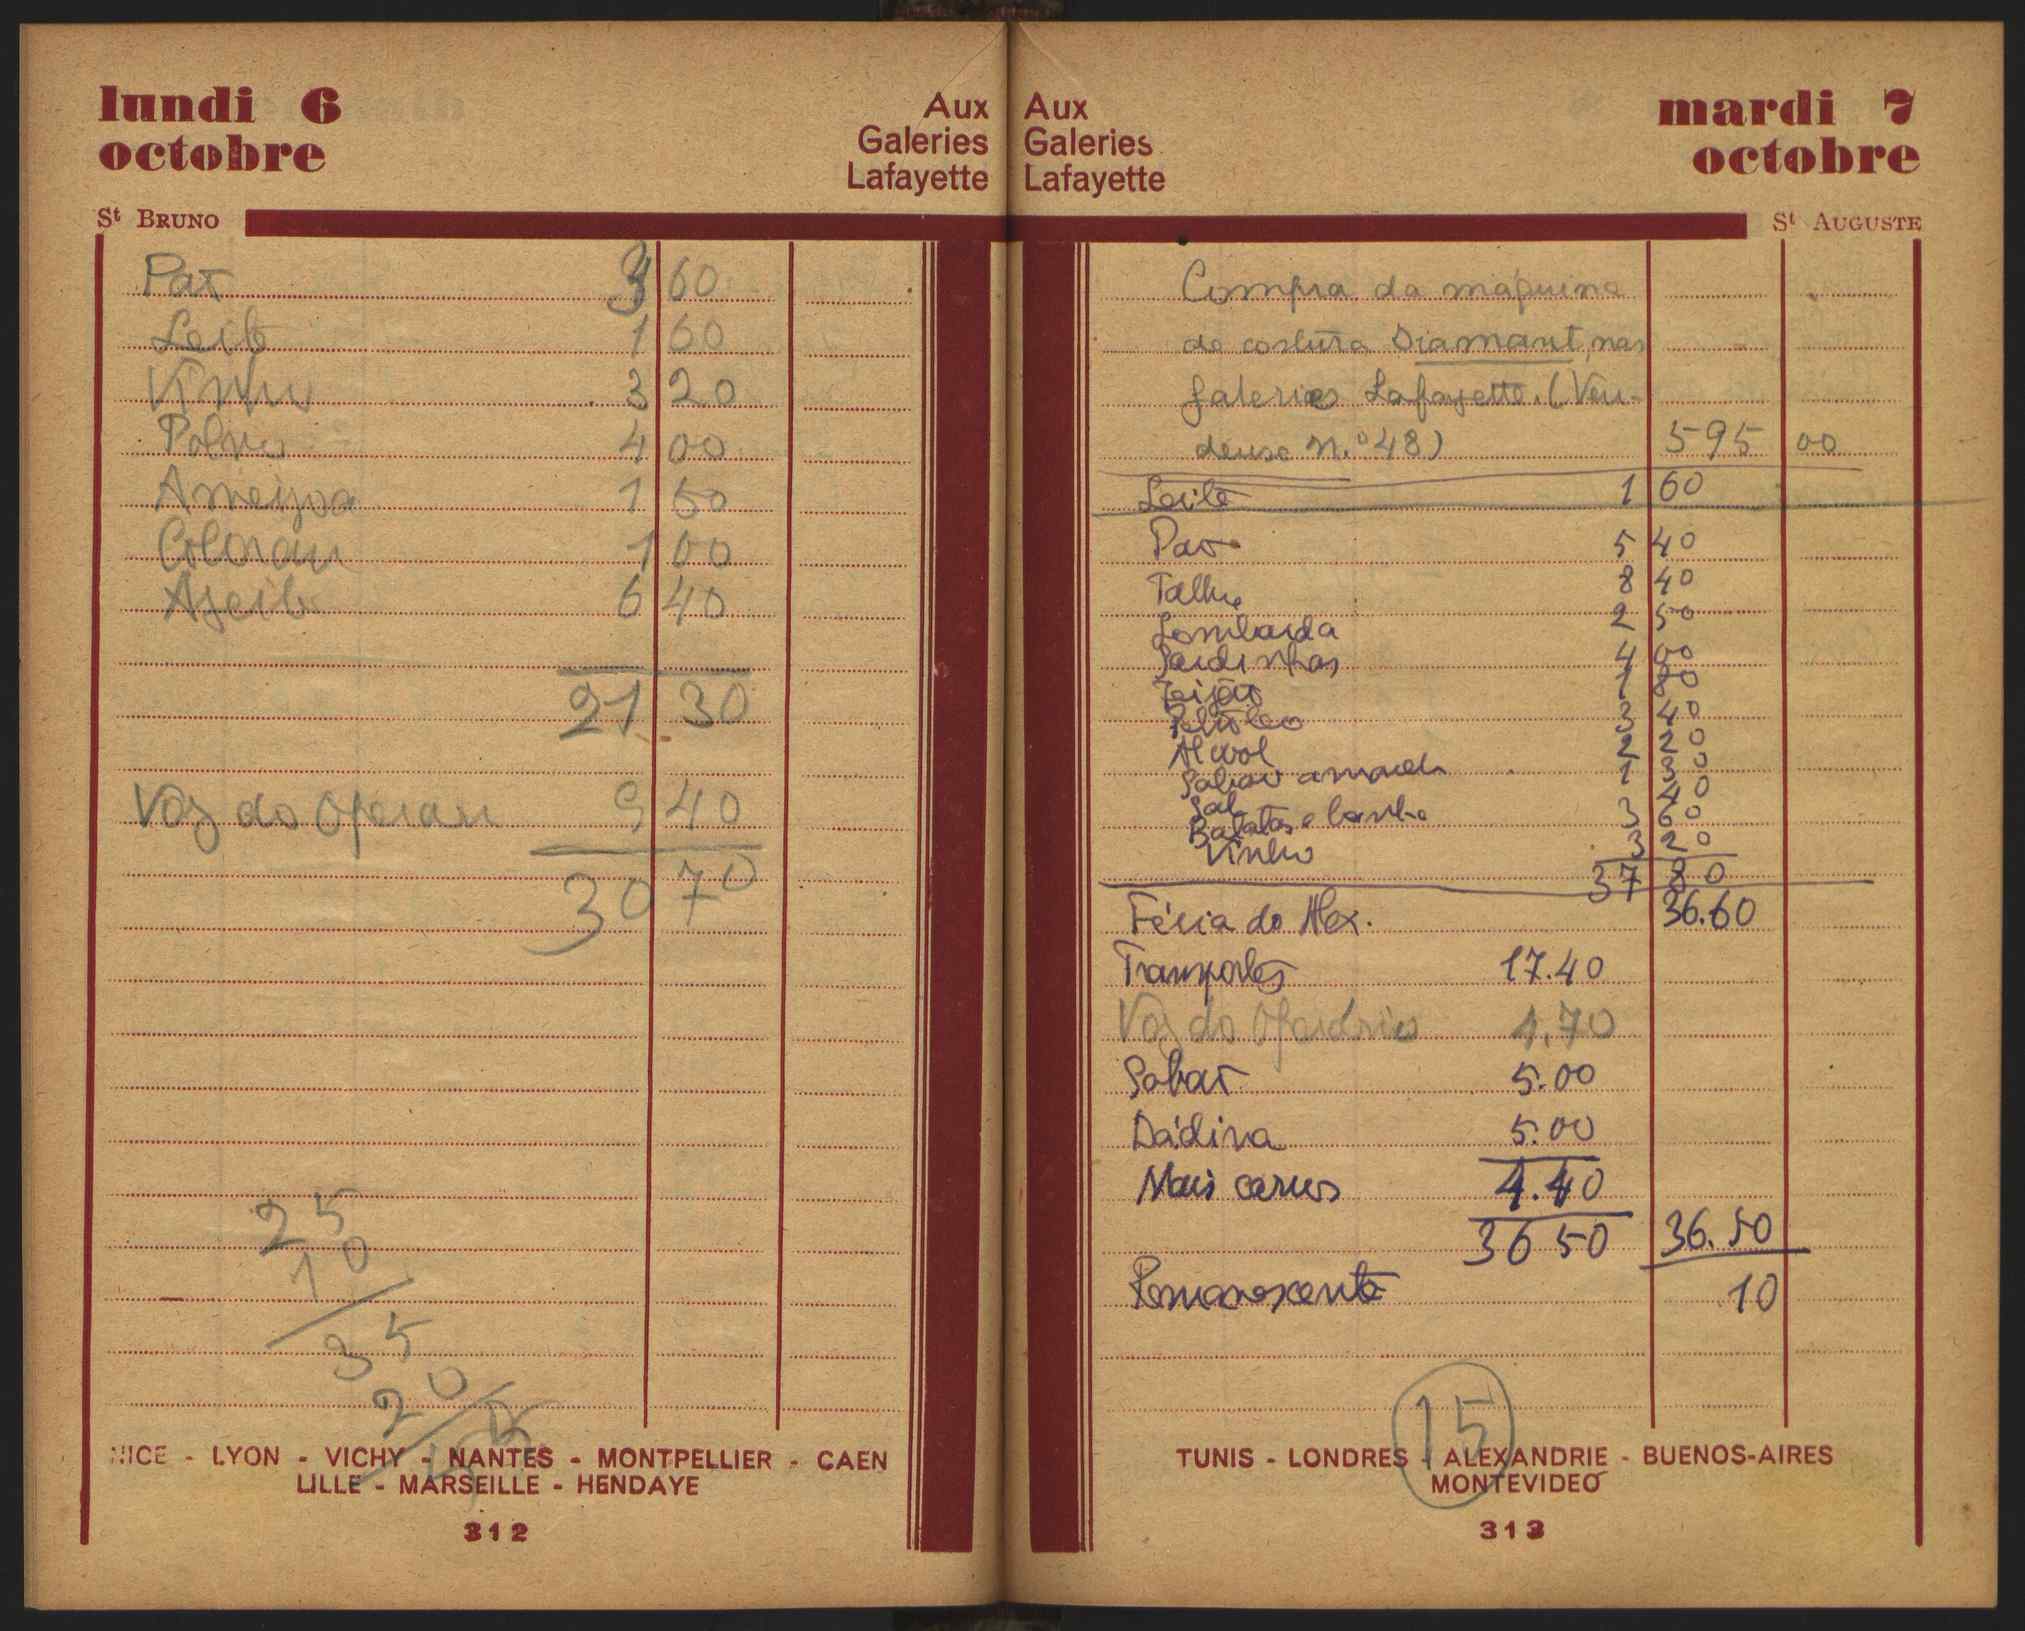 lundi 6
octobre
Aux
Galeries
Lafayette
St BRUNO
Pão 3 60
Leite 1 60
Vinho 3 20
Polvo 4 00
Ameijoa 1 50
Colorau 1 00
Azeite 6 40
21 30
Voz do Operario 9 40
30 70
25
10
35
20
NICE - LYON - VICHY - NANTES - MONTPELLIER - CAEN
LILLE - MARSEILLE - HENDAYE
312
Aux
Galeries
Lafayette
mardi 7
octobre
St AUGUSTE
Compra da máquina
de costura Diamant, nas
Galeries Lafayette. (Ven-
deuse N.º 48) 595 00
Leite 1 60
Pão 5 40
Talho 8 40
Lombarda 2 50
Sardinhas 4 00
Feijão 1 80
Petróleo 3 40
Alcool 2 20
Sabão amarelo 1 30
Sal 40
Batatas e banha 3 60
Vinho 3 20
37 80
Féria do Alex. 36.60
Transportes 17.40
Voz do Operário 4,70
Sabão 5.00
Dádiva 5.00
Mais carros 4.40
36 50 36.50
Remanescente 10
15
TUNIS - LONDRES - ALEXANDRIE - BUENOS-AIRES
MONTEVIDEO
313